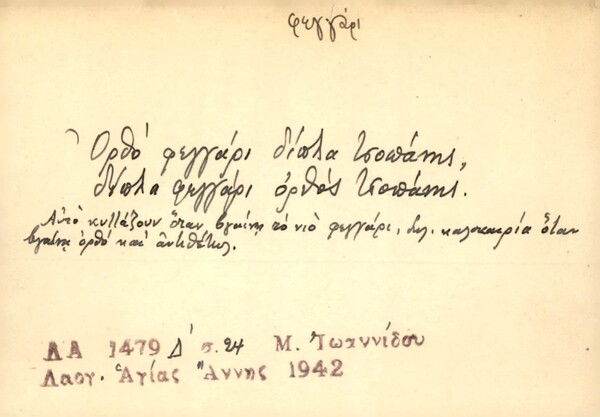 φεγγάρι
Ὀρθό φεγγάρι δίπλα τσοπάνης,
δίπλα φεγγάρι ὀρθός τσοπάνης.
Αὐτό κυττάζουν ὅταν βγαίνῃ τό νιό φεγγάρι, δηλ. καλοκαιρία ὅταν
βγαίνῃ ὀρθό καί ἀντιθέτως.
ΛΑ 1479 Δ' σ. 24 Μ. Ἰωαννίδου
Λαογ. Ἁγίας Ἄννης 1942